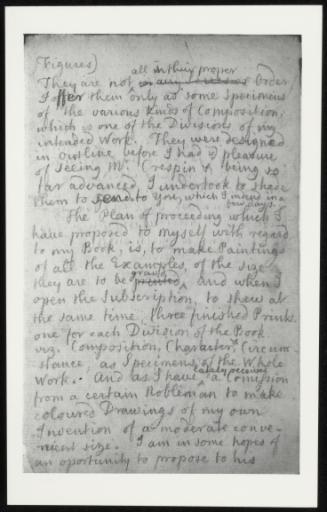 Figures)
all in their proper
They are not in any Series or Order
I offer them only as some Specimens
of the various kinds of Composition,
which is one of the Divisions of my
intended Work. They were designed
in outline before I had ye pleasure
of seeing Mr. Crespin & being so
far advanced, I undertook to shade
them to send to You, which I intend in a
few days.
The Plan of proceeding which I
have proposed to myself with regard
to my Book, is, to make Paintings
of all the Examples, of the size
they are to be printed graved, and when I
open the Subscription, to shew at
the same time, three finished Prints
one for each Division of the Book
viz. Composition, Character, Circum
stance, as Specimens of the Whole
Work. And as I have lately received a Comission
from a certain Nobleman to make
coloured Drawings of my own
Invention of a moderate conve-
nient size. I am in some hopes of
an oportunity to propose to his